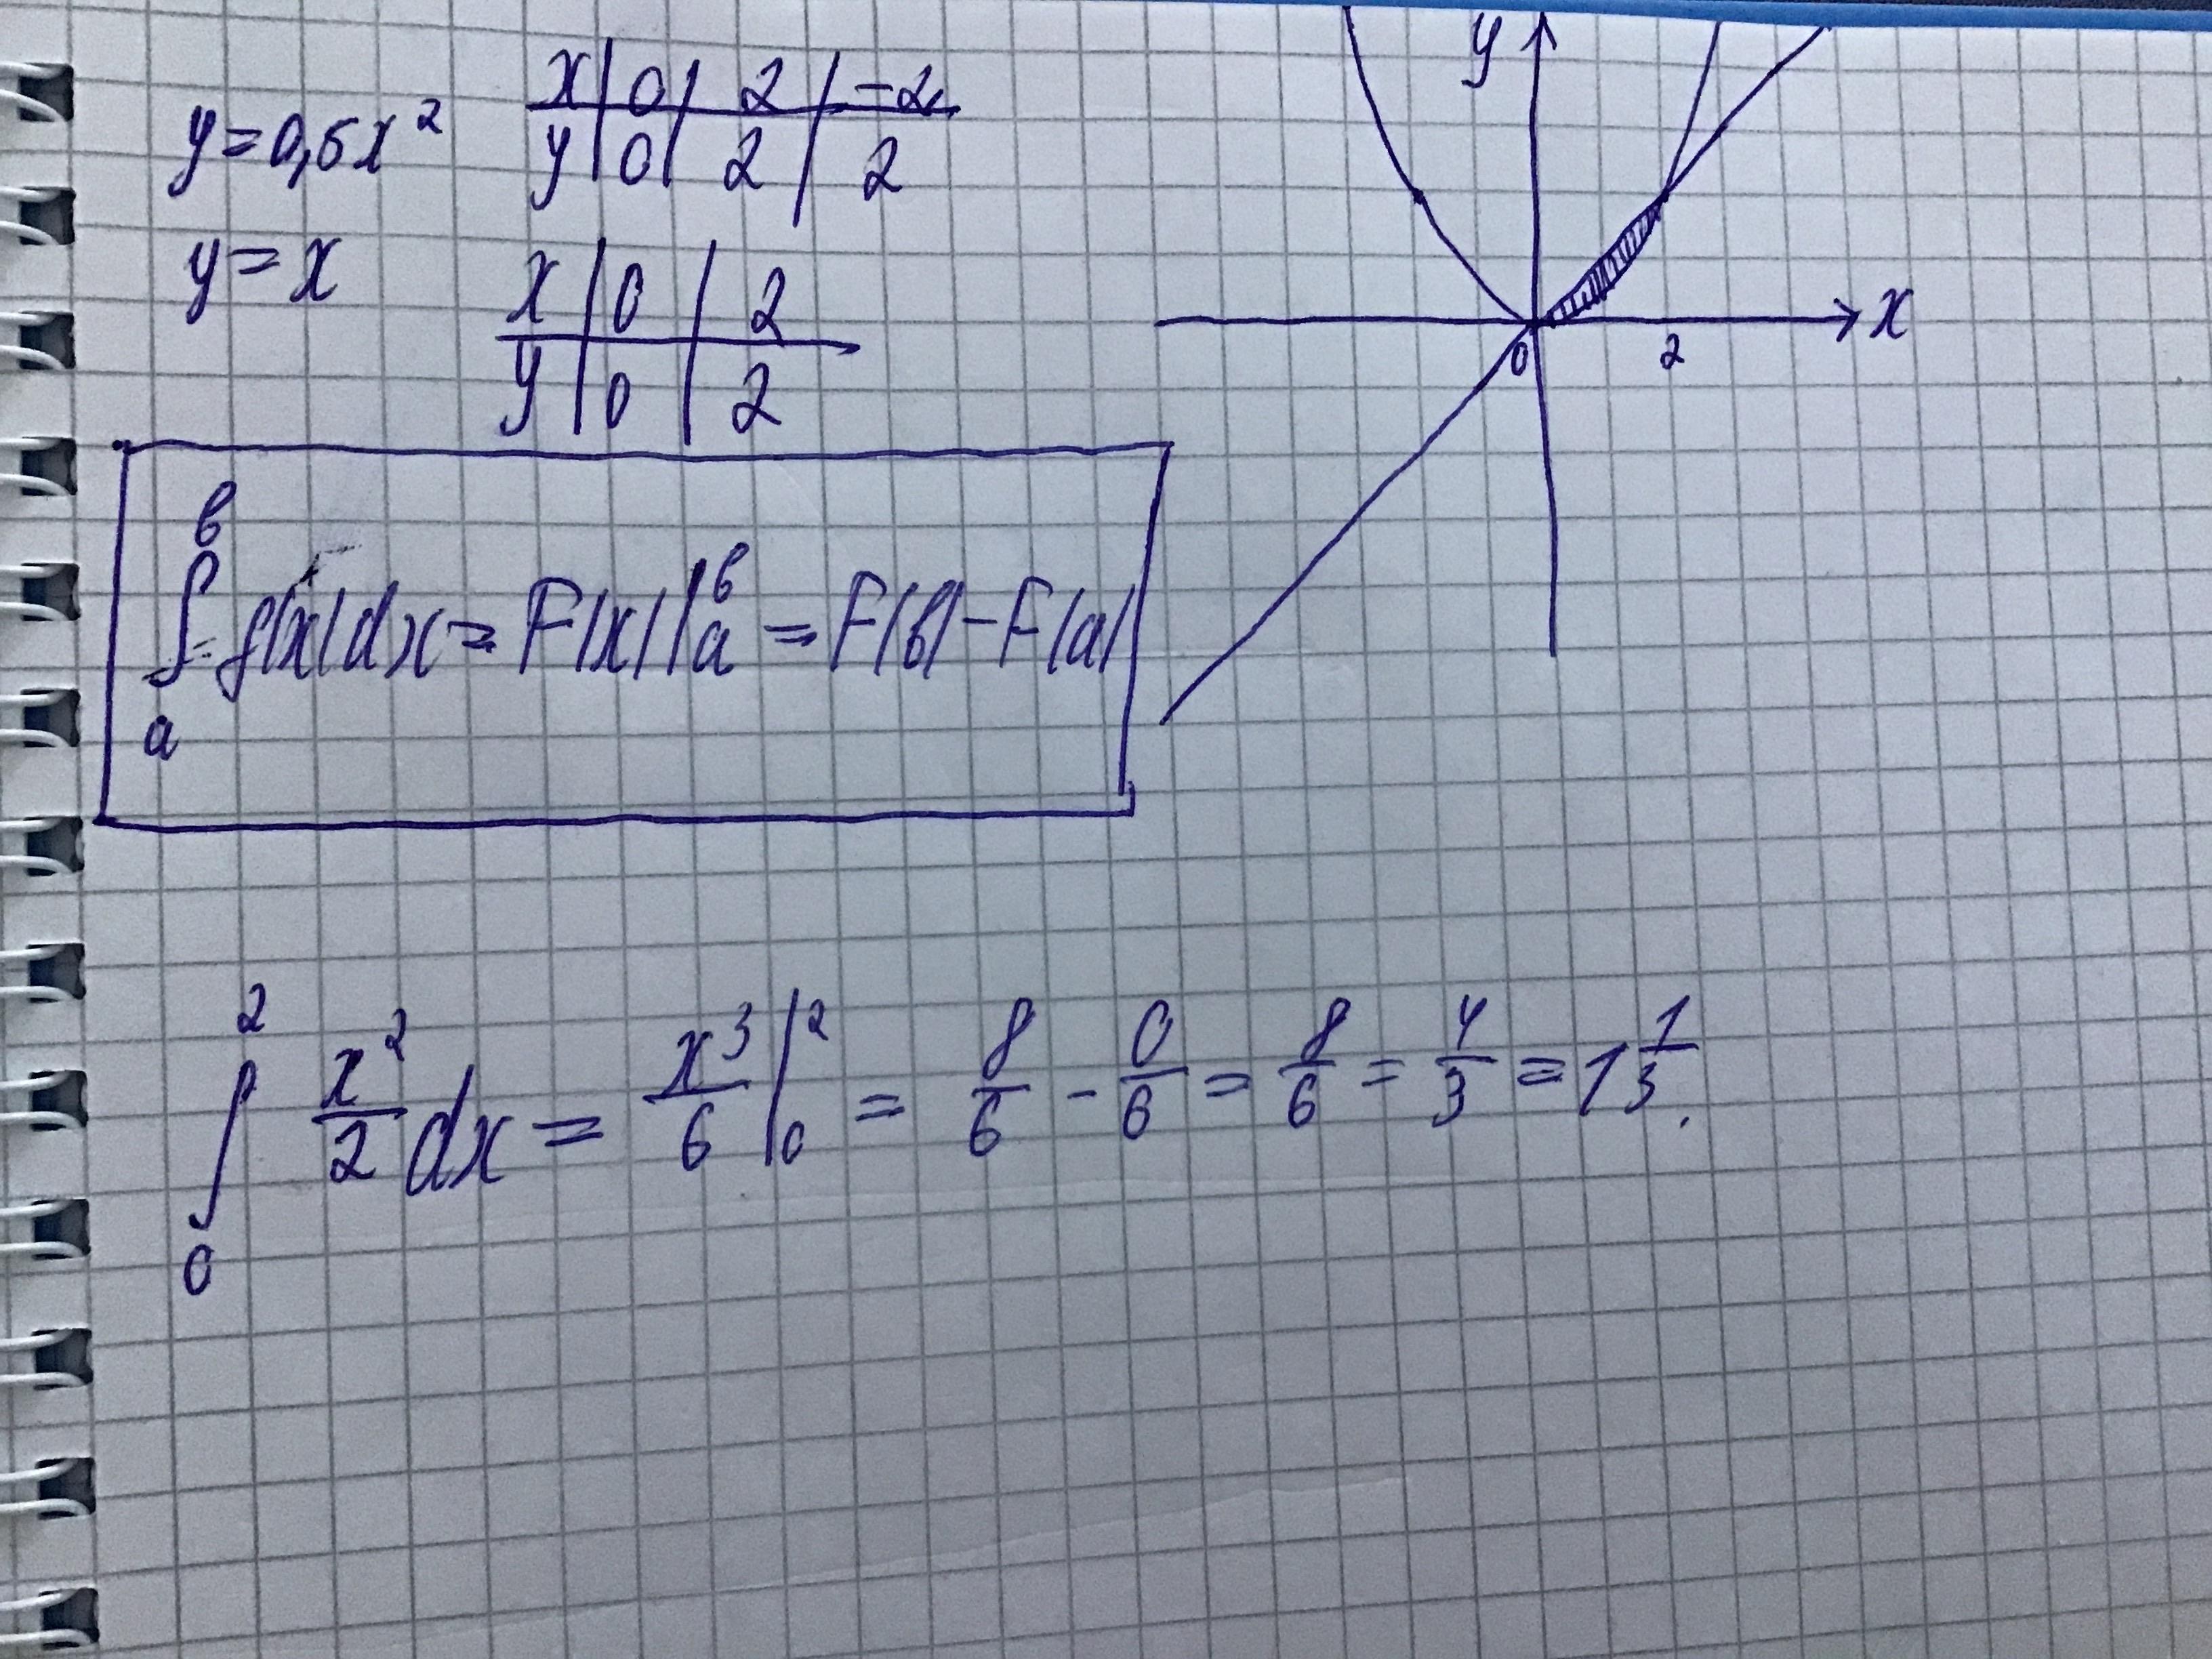 y=0,5x² x | 0 | 2 | -2
y | 0 | 2 | 2
y = x x | 0 | 2
y | 0 | 2
y
x
0 2
∫ₐᵇ f(x)dx = F(x)|ₐᵇ = F(b) - F(a)
∫₀² x²/2 dx = x³/6 |₀² = 8/6 - 0/6 = 8/6 = 4/3 = 1 1/3.